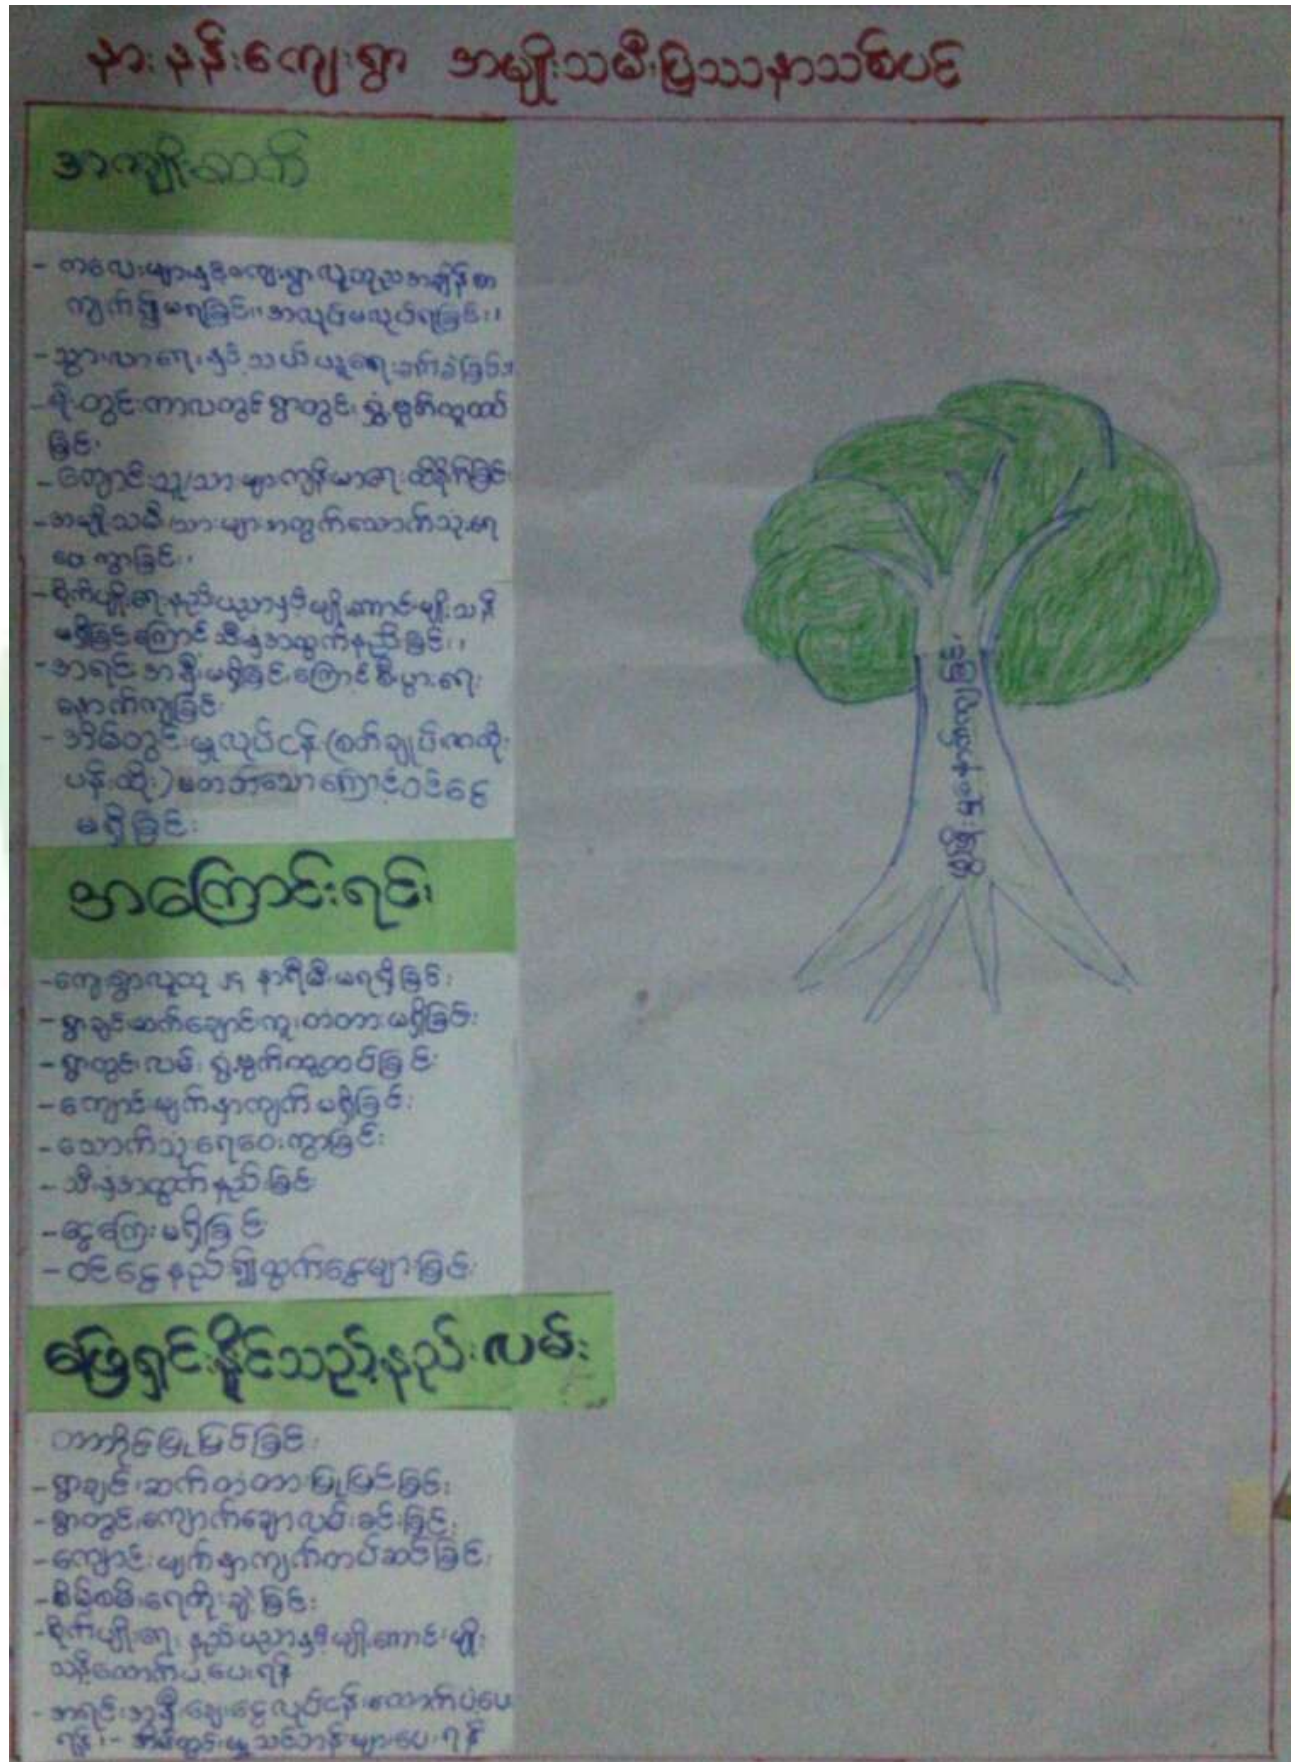 နားနန်းကျေးရွာ အမျိုးသမီးပြဿနာသစ်ပင်
အကျိုးဆက်
- ကလေးများနှင့်ကျေးရွာလူထုညအချိန်စာ
ကျက်၍မရခြင်း၊ အလုပ်မလုပ်ရခြင်း၊
- သွားလာရေးနှင့်သယ်ယူရေးခက်ခဲခြင်း
- မိုးတွင်းကာလတွင်ရွာတွင်းရွှံ့ဗွက်ထူထပ်
ခြင်း
- ကျောင်းသူ/သားများကျန်းမာရေးထိခိုက်ခြင်း
- အမျိုးသမီး/သားများအတွက်သောက်သုံးရေ
ဝေးကွာခြင်း၊
- စိုက်ပျိုးရေးနည်းပညာနှင့်မျိုးကောင်းမျိုးသန့်
မရှိခြင်းကြောင့်သီးနှံအထွက်နည်းခြင်း၊
- အရင်းအနှီးမရှိခြင်းကြောင့်စီးပွားရေး
နောက်ကျခြင်း
- အိမ်တွင်းမှုလုပ်ငန်း(စက်ချုပ်၊ဇာထိုး
ပန်းထိုး)မတတ်သောကြောင့်ဝင်ငွေ
မရှိခြင်း
ဖွံ့ဖြိုးမှုနောက်ကျခြင်း
အကြောင်းရင်း
- ကျေးရွာလူထု ၂၄ နာရီမီးမရရှိခြင်း
- ရွာချင်းဆက်ချောင်းကူးတံတားမရှိခြင်း
- ရွာတွင်းလမ်း ရွှံ့ဗွက်ထူထပ်ခြင်း
- ကျောင်းမျက်နှာကျက်မရှိခြင်း
- သောက်သုံးရေဝေးကွာခြင်း
- သီးနှံအထွက်နည်းခြင်း
- ငွေကြေးမရှိခြင်း
- ဝင်ငွေနည်း၍ထွက်ငွေများခြင်း
ဖြေရှင်းနိုင်သည့်နည်းလမ်း
တာဘိုင်ပြုပြင်ခြင်း
- ရွာချင်းဆက်တံတားပြုပြင်ခြင်း
- ရွာတွင်းကျောက်ချောလမ်းခင်းခြင်း
- ကျောင်းမျက်နှာကျက်တပ်ဆင်ခြင်း
- စိမ့်စမ်းရေတိုးချဲ့ခြင်း
- စိုက်ပျိုးရေးနည်းပညာနှင့်မျိုးကောင်းမျိုး
သန့်ထောက်ပံ့ပေးရန်
- အရင်းအနှီးချေးငွေလုပ်ငန်းထောက်ပံ့ပေး
ရန်၊ - အိမ်တွင်းမှုသင်တန်းများပေးရန်